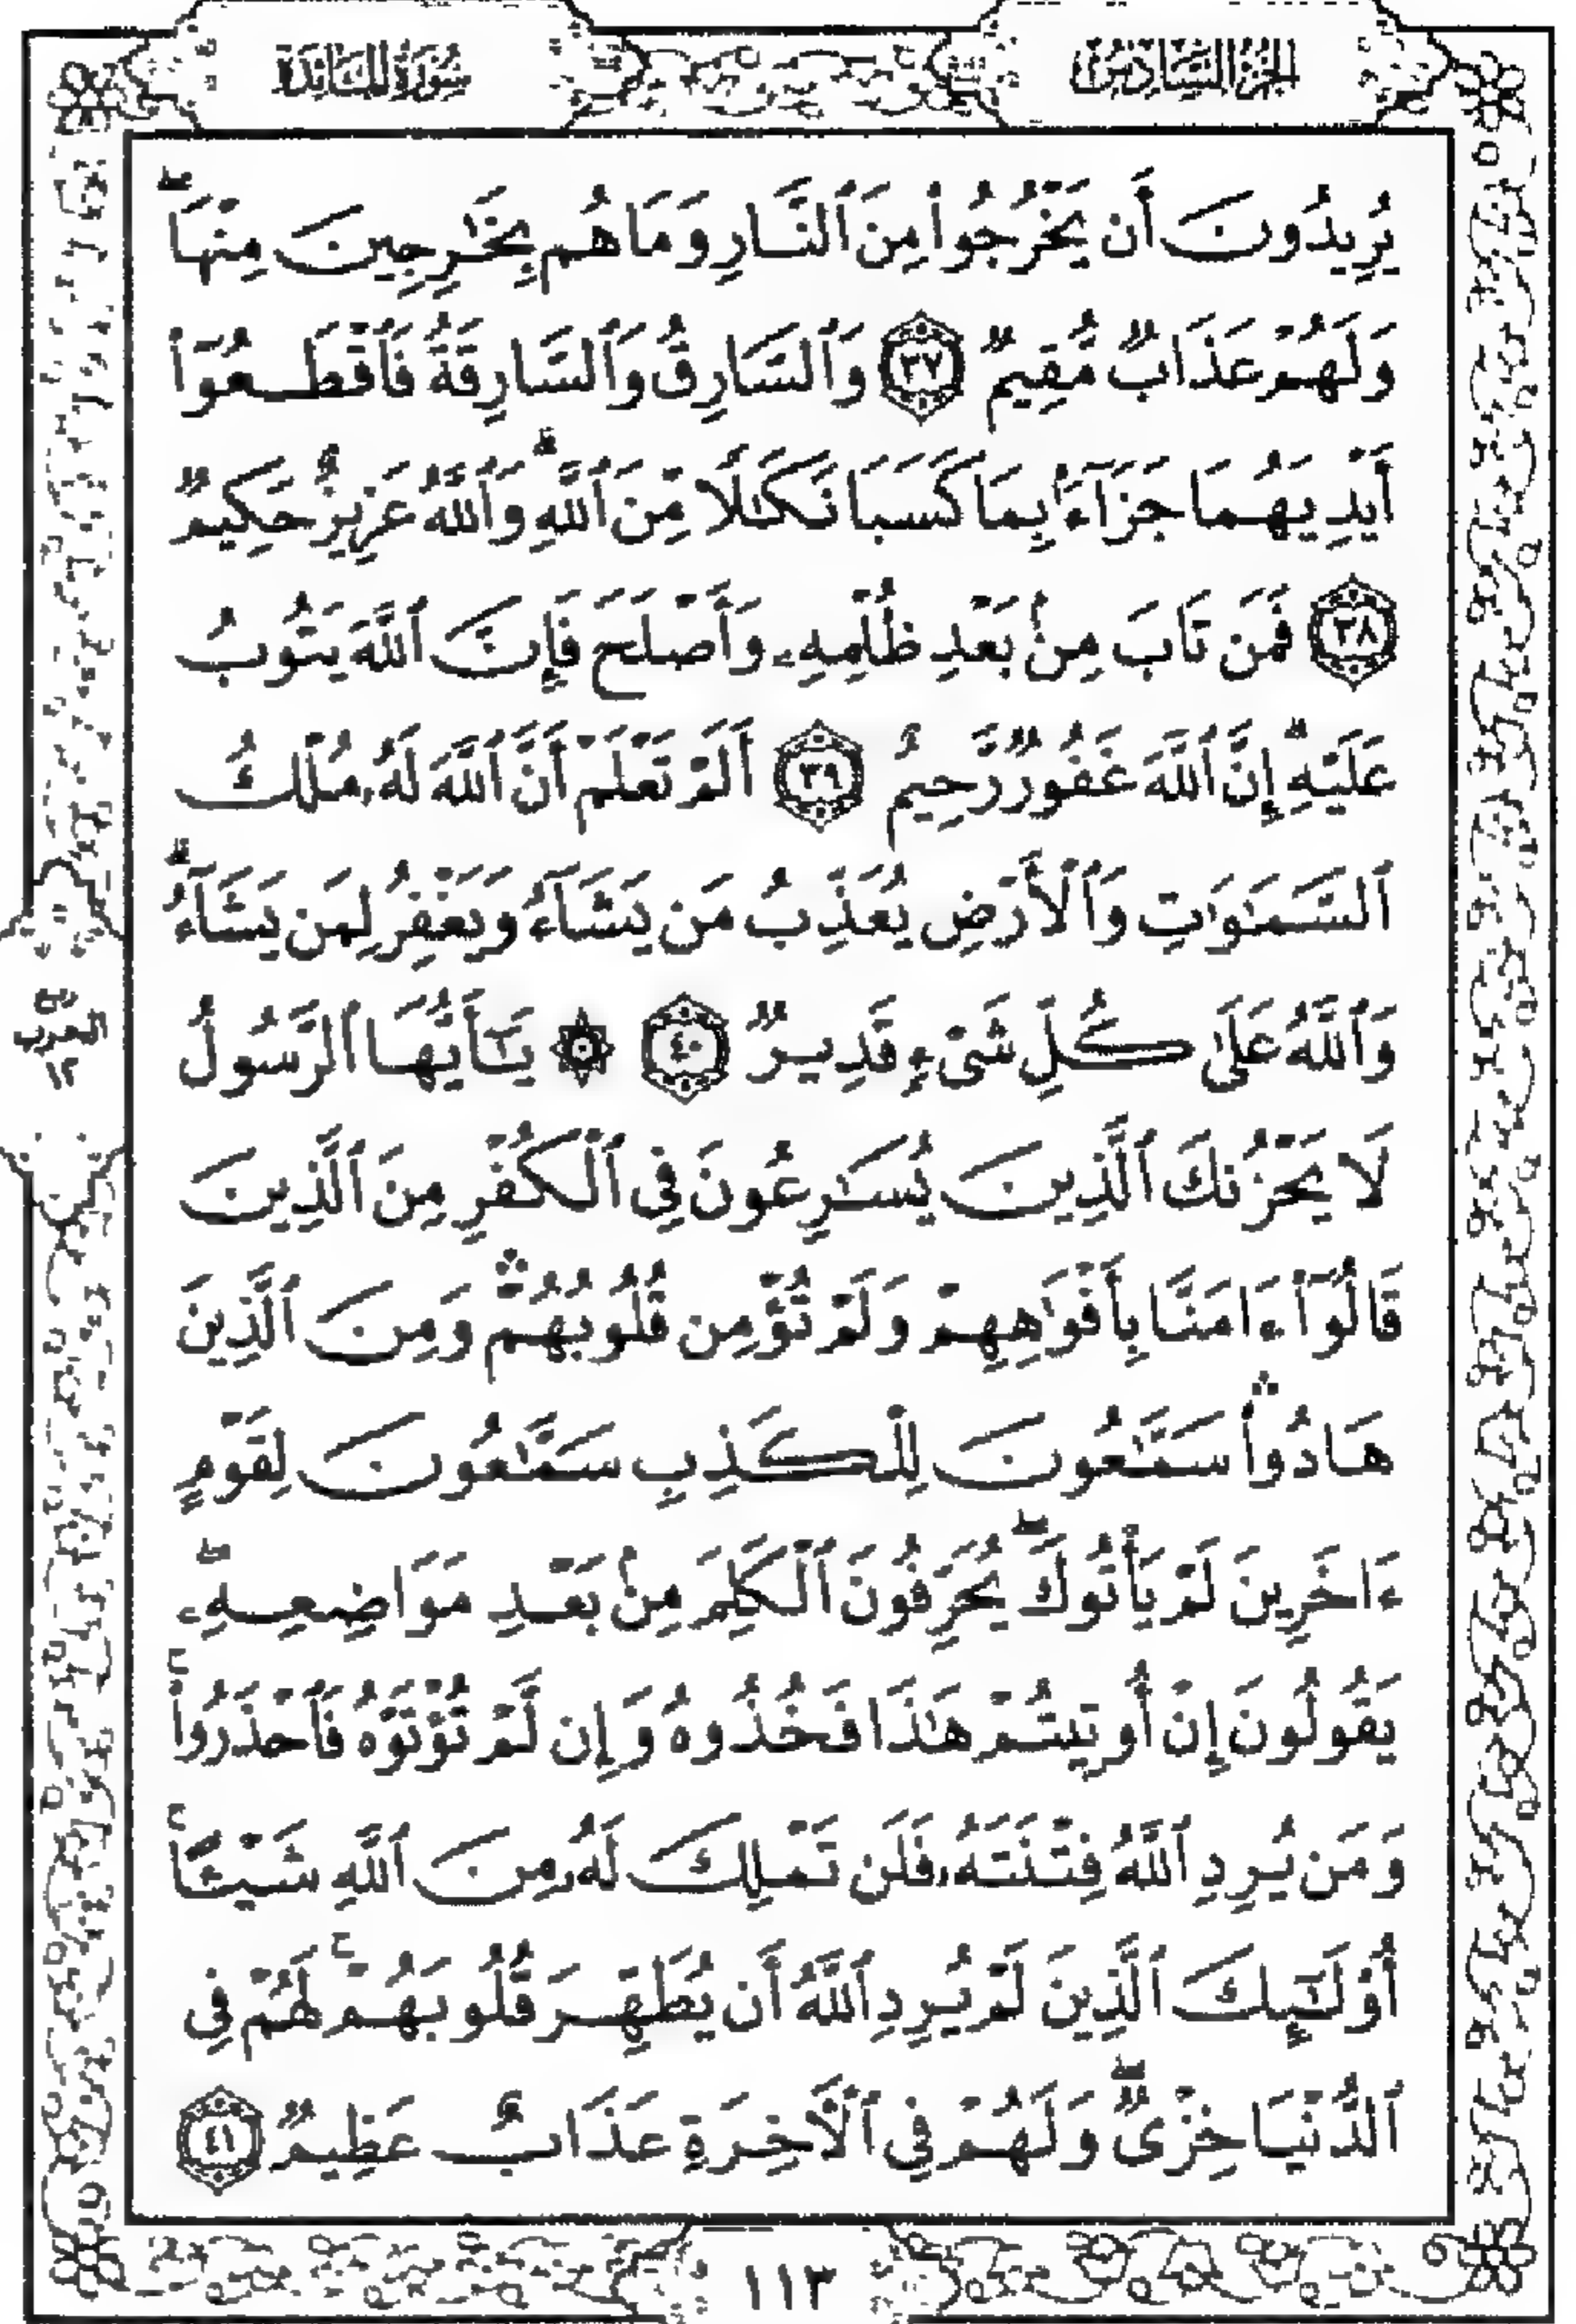 الجزء السادس سورة المائدة
يُرِيدُونَ أَن يَخْرُجُوا۟ مِنَ ٱلنَّارِ وَمَا هُم بِخَٰرِجِينَ مِنْهَا ۖ
وَلَهُمْ عَذَابٌ مُّقِيمٌ ٣٧ وَٱلسَّارِقُ وَٱلسَّارِقَةُ فَٱقْطَعُوٓا۟
أَيْدِيَهُمَا جَزَآءًۢ بِمَا كَسَبَا نَكَٰلًا مِّنَ ٱللَّهِ ۗ وَٱللَّهُ عَزِيزٌ حَكِيمٌ
٣٨ فَمَن تَابَ مِنۢ بَعْدِ ظُلْمِهِۦ وَأَصْلَحَ فَإِنَّ ٱللَّهَ يَتُوبُ
عَلَيْهِ ۗ إِنَّ ٱللَّهَ غَفُورٌ رَّحِيمٌ ٣٩ أَلَمْ تَعْلَمْ أَنَّ ٱللَّهَ لَهُۥ مُلْكُ
ٱلسَّمَٰوَٰتِ وَٱلْأَرْضِ يُعَذِّبُ مَن يَشَآءُ وَيَغْفِرُ لِمَن يَشَآءُ ۗ
وَٱللَّهُ عَلَىٰ كُلِّ شَىْءٍ قَدِيرٌ ٤٠ ۞ يَٰٓأَيُّهَا ٱلرَّسُولُ
لَا يَحْزُنكَ ٱلَّذِينَ يُسَٰرِعُونَ فِى ٱلْكُفْرِ مِنَ ٱلَّذِينَ
قَالُوٓا۟ ءَامَنَّا بِأَفْوَٰهِهِمْ وَلَمْ تُؤْمِن قُلُوبُهُمْ ۛ وَمِنَ ٱلَّذِينَ
هَادُوا۟ ۛ سَمَّٰعُونَ لِلْكَذِبِ سَمَّٰعُونَ لِقَوْمٍ
ءَاخَرِينَ لَمْ يَأْتُوكَ ۖ يُحَرِّفُونَ ٱلْكَلِمَ مِنۢ بَعْدِ مَوَاضِعِهِۦ ۖ
يَقُولُونَ إِنْ أُوتِيتُمْ هَٰذَا فَخُذُوهُ وَإِن لَّمْ تُؤْتَوْهُ فَٱحْذَرُوا۟ ۚ
وَمَن يُرِدِ ٱللَّهُ فِتْنَتَهُۥ فَلَن تَمْلِكَ لَهُۥ مِنَ ٱللَّهِ شَيْـًٔا ۚ
أُو۟لَٰٓئِكَ ٱلَّذِينَ لَمْ يُرِدِ ٱللَّهُ أَن يُطَهِّرَ قُلُوبَهُمْ ۚ لَهُمْ فِى
ٱلدُّنْيَا خِزْىٌ ۖ وَلَهُمْ فِى ٱلْءَاخِرَةِ عَذَابٌ عَظِيمٌ ٤١
١١٣